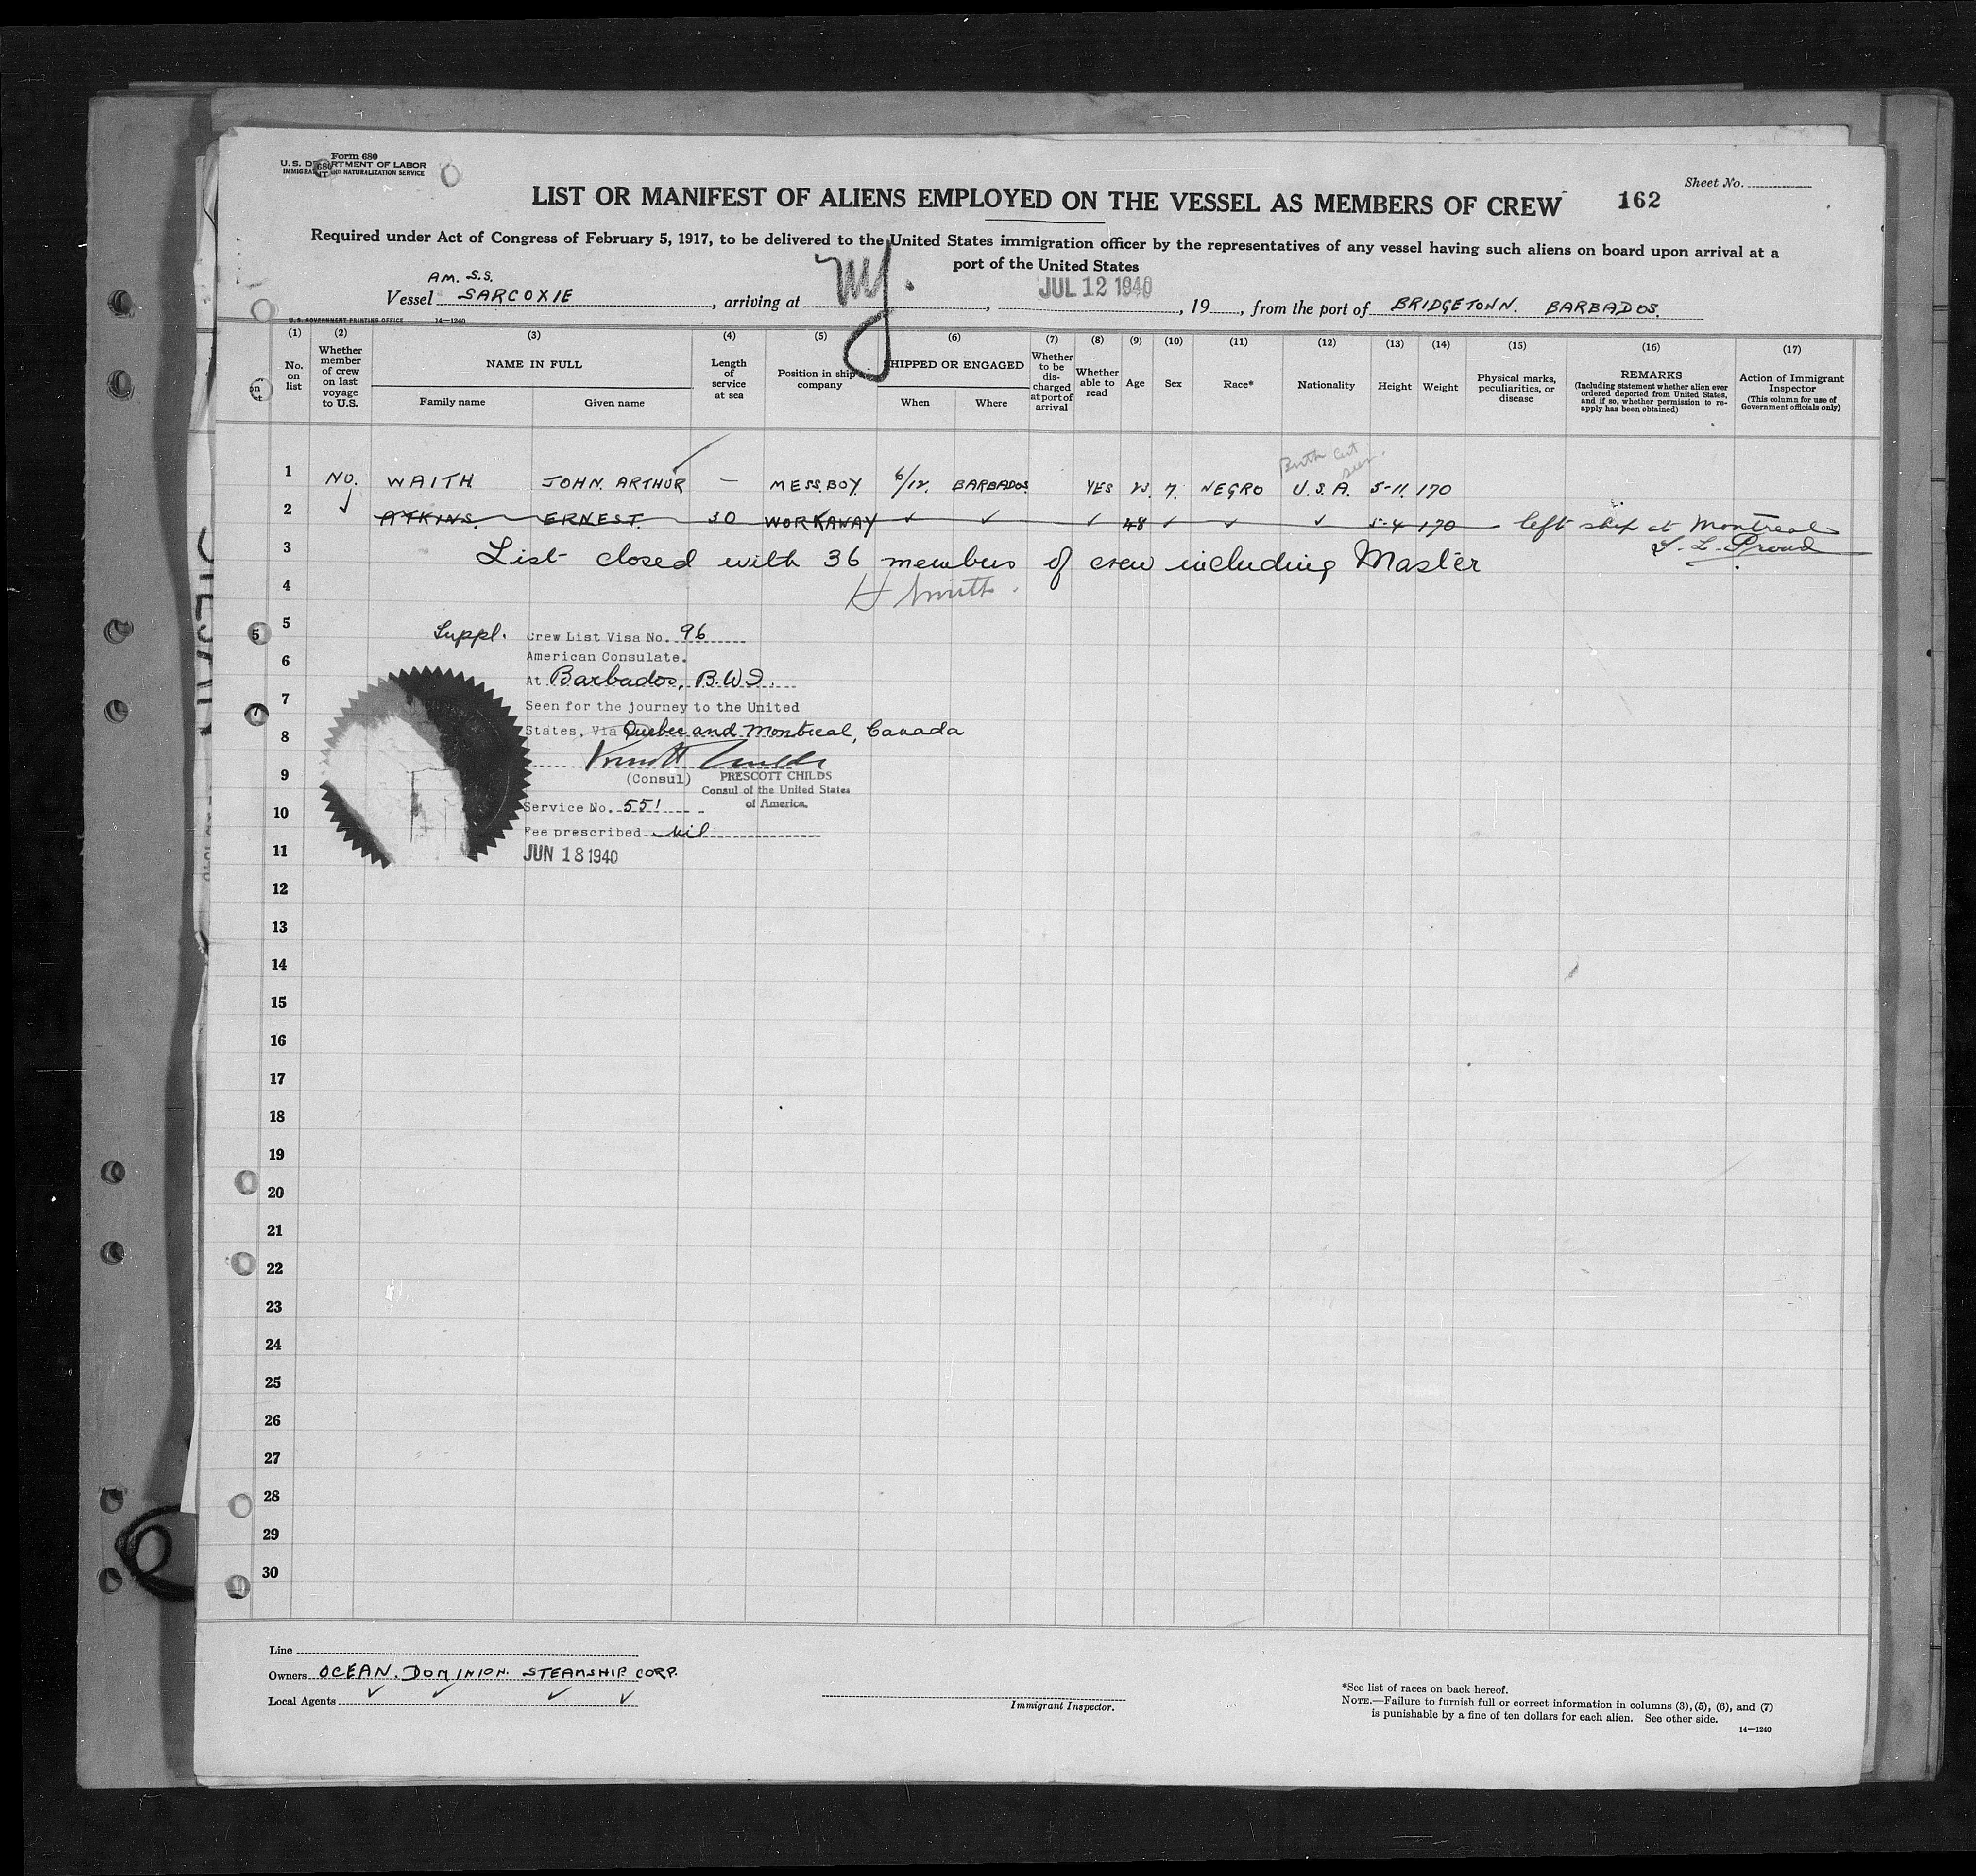 Form 680
U. S. DEPARTMENT OF LABOR
IMMIGRATION AND NATURALIZATION SERVICE
Sheet No.
LIST OR MANIFEST OF ALIENS EMPLOYED ON THE VESSEL AS MEMBERS OF CREW 162
Required under Act of Congress of February 5, 1917, to be delivered to the United States immigration officer by the representatives of any vessel having such aliens on board upon arrival at a
port of the United States
AM. S.S.
JUL 12 1940
Vessel SARCOXIE, arriving at NY., , 19 , from the port of BRIDGETOWN. BARBADOS.
U. S. GOVERNMENT PRINTING OFFICE 14—1240
(1) (2) (3) (4) (5) (6) (7) (8) (9) (10) (11) (12) (13) (14) (15) (16) (17)
No. on list
Whether member of crew on last voyage to U.S.
NAME IN FULL
Family name
Given name
Length of service at sea
Position in ship's company
SHIPPED OR ENGAGED
When
Where
Whether to be discharged at port of arrival
Whether able to read
Age
Sex
Race*
Nationality
Height
Weight
Physical marks, peculiarities, or disease
REMARKS
(Including statement whether alien ever ordered deported from United States, and if so, whether permission to re-apply has been obtained)
Action of Immigrant Inspector
(This column for use of Government officials only)
Birth Cert
seen.
1 NO. WAITH JOHN. ARTHUR — MESS.BOY. 6/12. BARBADOS. YES 23. M. NEGRO U.S.A. 5-11. 170
2 ✓ ATKINS. ERNEST. 30 WORKAWAY ✓ ✓ ✓ 48 ✓ ✓ ✓ 5-4 170 left ship at Montreal
3 List closed with 36 members of crew including Master
4 H Smith.
5 Suppl. Crew List Visa No. 96
6 American Consulate.
At Barbados, B.W.I.
7 Seen for the journey to the United
8 States, Via Quebec and Montreal, Canada
9 (Consul) PRESCOTT CHILDS
Consul of the United States
of America.
10 Service No. 551
Fee prescribed nil
11 JUN 18 1940
12
13
14
15
16
17
18
19
20
21
22
23
24
25
26
27
28
29
30
Line
Owners OCEAN. DOMINION. STEAMSHIP. CORP.
Local Agents ✓ ✓ ✓ ✓
Immigrant Inspector.
*See list of races on back hereof.
NOTE.—Failure to furnish full or correct information in columns (3), (5), (6), and (7)
is punishable by a fine of ten dollars for each alien. See other side.
14—1240